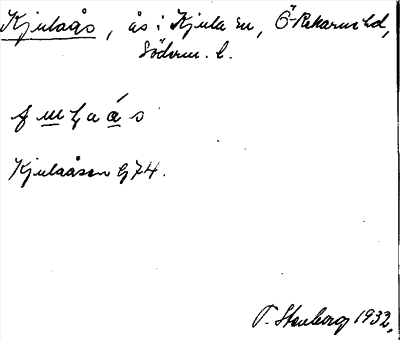 Kjulaås, ås i Kjula sn, Ö-Rekarne hd,
Söderm. l.
Kjulaåsen G74.
P. Stenberg 1932.